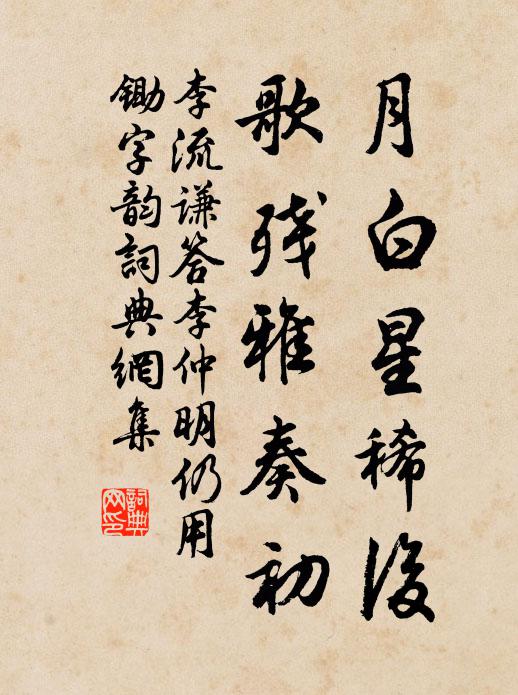 月白星稀後
歌残雅奏初
李流谦答李仲明仍用
锄字韵詞典網集
詞典网印